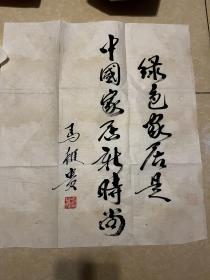 绿色家居是
中國家居新時尚
馬維貴